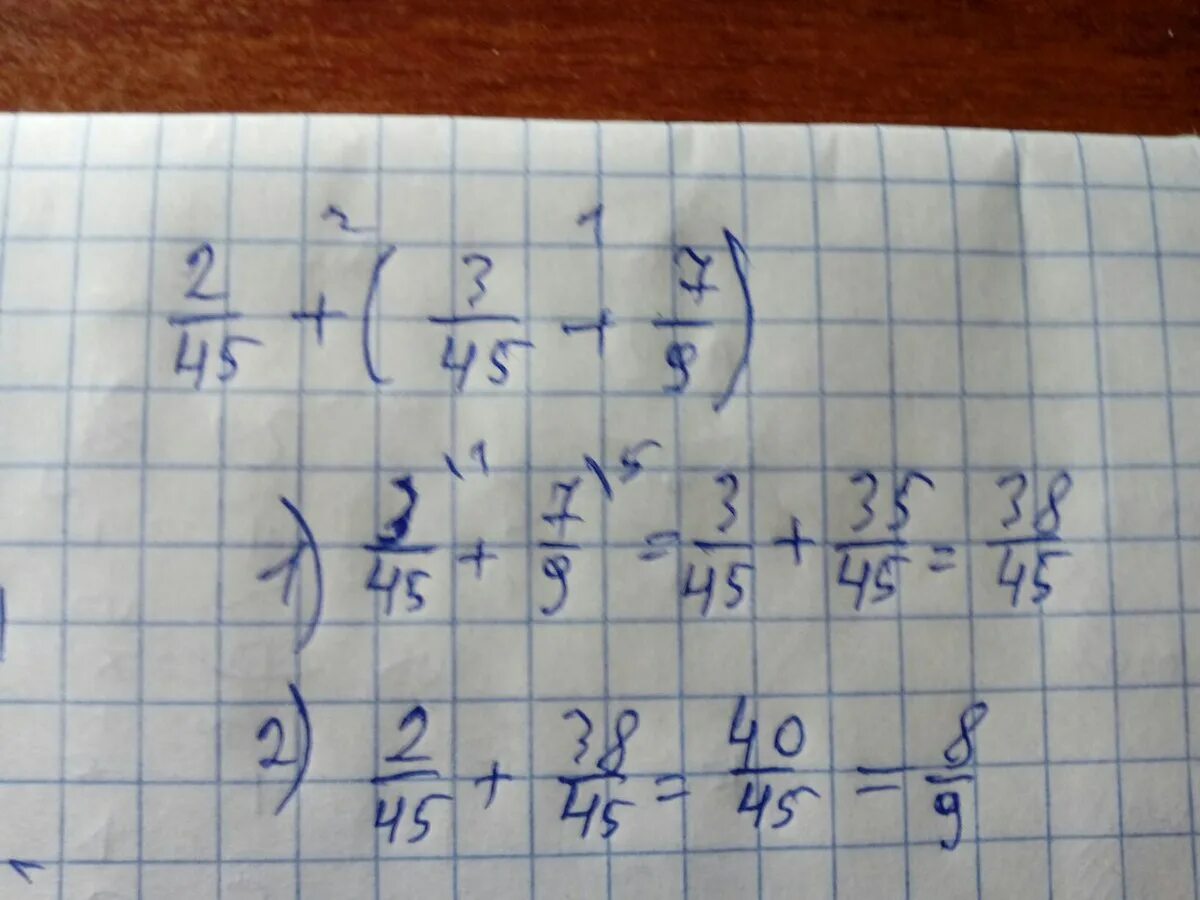 2 1
2/45 + (3/45 + 7/9)
1) 3/45 \1 + 7/9 \5 = 3/45 + 35/45 = 38/45
2) 2/45 + 38/45 = 40/45 = 8/9